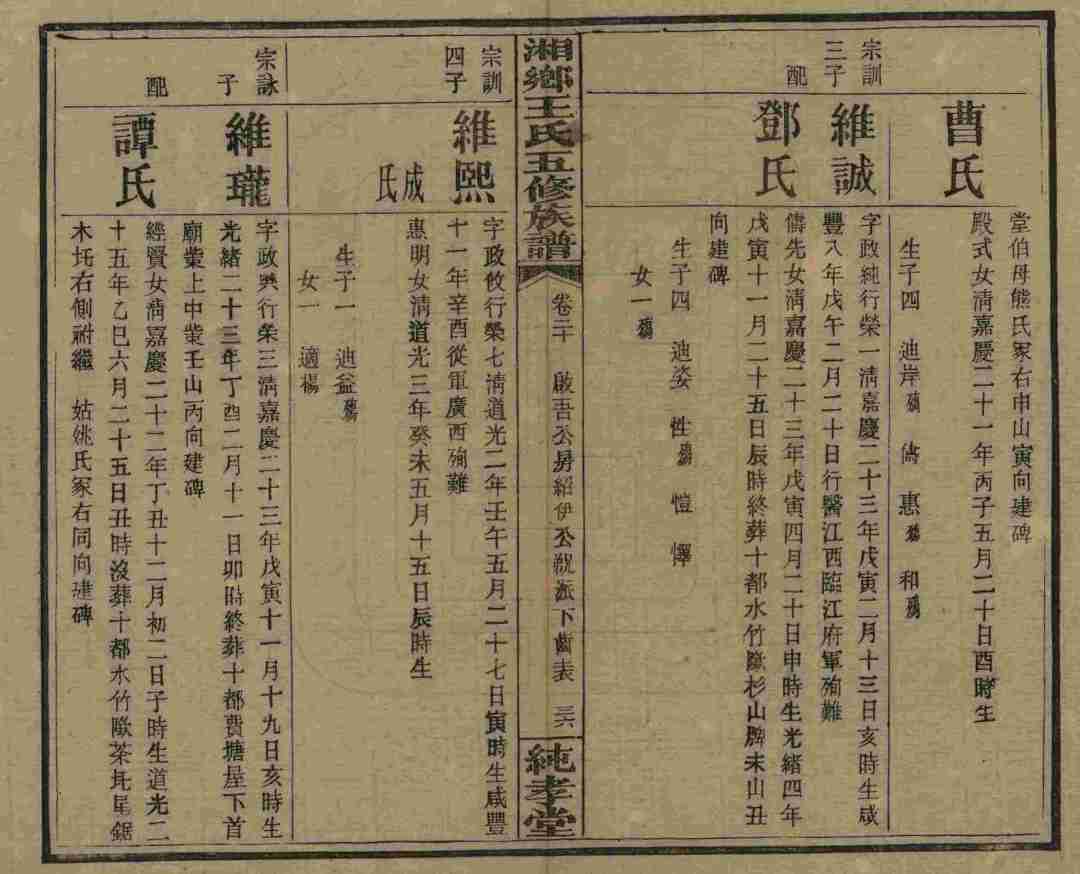 堂伯母熊氏冢右申山寅向建碑
曹氏
殿式女清嘉慶二十一年丙子五月二十日酉時生
生子四　迪岸殤　儔　惠殤　和殤
宗訓三子
維誠
字政純行榮一清嘉慶二十三年戊寅二月十三日亥時生咸
豐八年戊午二月二十日行醫江西臨江府軍殉難
配
鄧氏
儔先女清嘉慶二十三年戊寅四月二十日申時生光緒四年
戊寅十一月二十五日辰時終葬十都水竹歐杉山牌未山丑
向建碑
生子四　迪姿　性殤　愷　懌
女一殤
湘鄉王氏五修族譜
卷二十　啟吾公房紹伊公派下齒表　三六
純孝堂
宗訓四子
維熙
字政攸行榮七清道光二年壬午五月二十七日寅時生咸豐
十一年辛酉從軍廣西殉難
成氏
惠明女清道光三年癸未五月十五日辰時生
生子一　迪益殤
女一　適楊
宗詠子
維瓏
字政興行榮三清嘉慶二十三年戊寅十一月十九日亥時生
光緒二十三年丁酉二月十一日卯時終葬十都費塘屋下首
廟塋上中塋壬山丙向建碑
配
譚氏
經賢女清嘉慶二十二年丁丑十二月初二日子時生道光二
十五年乙巳六月二十五日丑時沒葬十都水竹歐茶托星鋸
木坵右側祔繼　姑姚氏冢右同向建碑